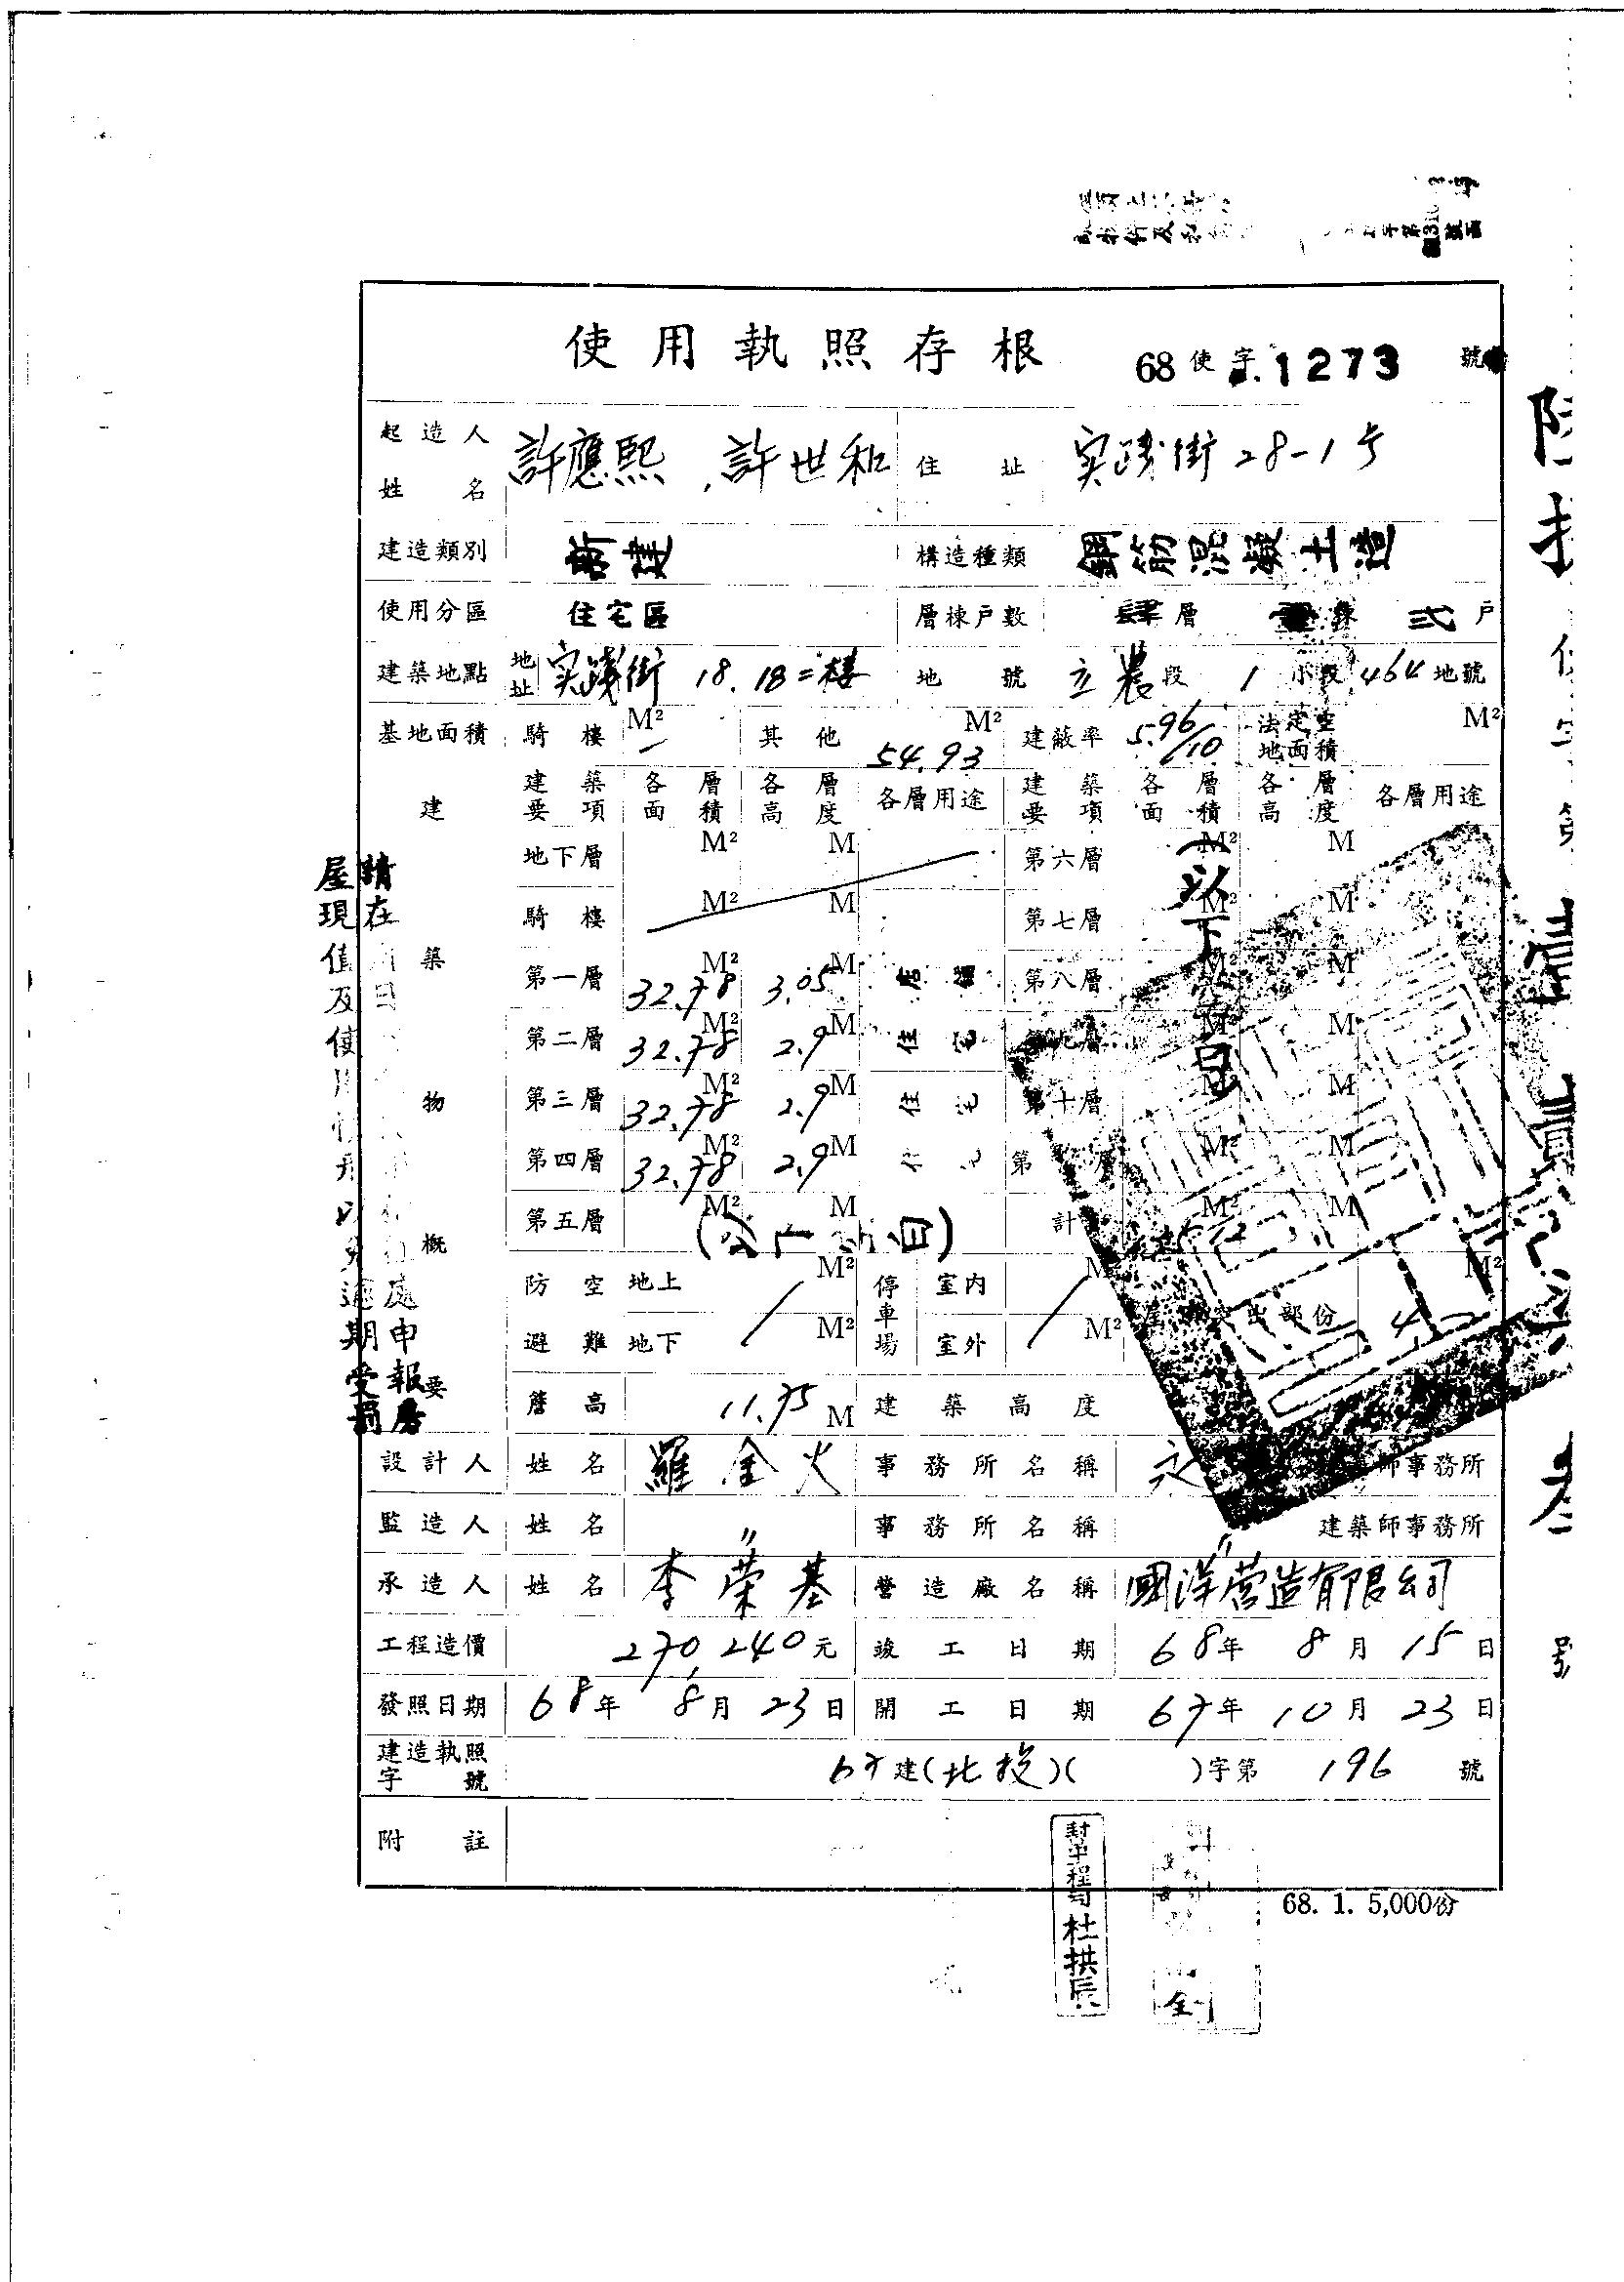 使用執照存根 68使字 1273 號
起造人姓名 許應熙.許世和 住址 实踐街28-1号
建造類別 新建 構造種類 鋼筋混凝土造
使用分區 住宅區 層棟戶數 肆層 壹棟 弍戶
建築地點 地址 实踐街18.18=樓 地號 立農段 1小段 464地號
基地面積 騎樓 M² 其他 54.93 M² 建蔽率 5.96/10 法定空地面積 M²
建築物概要
建築要項 各層面積 各層高度 各層用途 建築要項 各層面積 各層高度 各層用途
地下層 M² M 第六層 M² M
騎樓 M² M 第七層 M² M
第一層 32.78 M² 3.05 M 店舖 第八層 M² M
第二層 32.78 M² 2.9 M 住宅 第九層 M² M
第三層 32.78 M² 2.9 M 住宅 第十層 M² M
第四層 32.78 M² 2.9 M 第 層 M² M
第五層 M² M 計 M² M
(以下空白
防空避難 地上 M² 停車場 室內 M² 突出部份 M²
地下 M² 室外 M²
簷高 11.75 M 建築高度
設計人 姓名 羅金火 事務所名稱 師事務所
監造人 姓名 〃 事務所名稱 〃 建築師事務所
承造人 姓名 李荣基 營造廠名稱 國洋营造有限公司
工程造價 270,240元 竣工日期 68年8月15日
發照日期 68年8月23日 開工日期 67年10月23日
建造執照字號 67建(北投)( )字第196號
附註
68. 1. 5,000份
杜拱辰
請在
處申報房
屋現值及使
逾期受罰
號